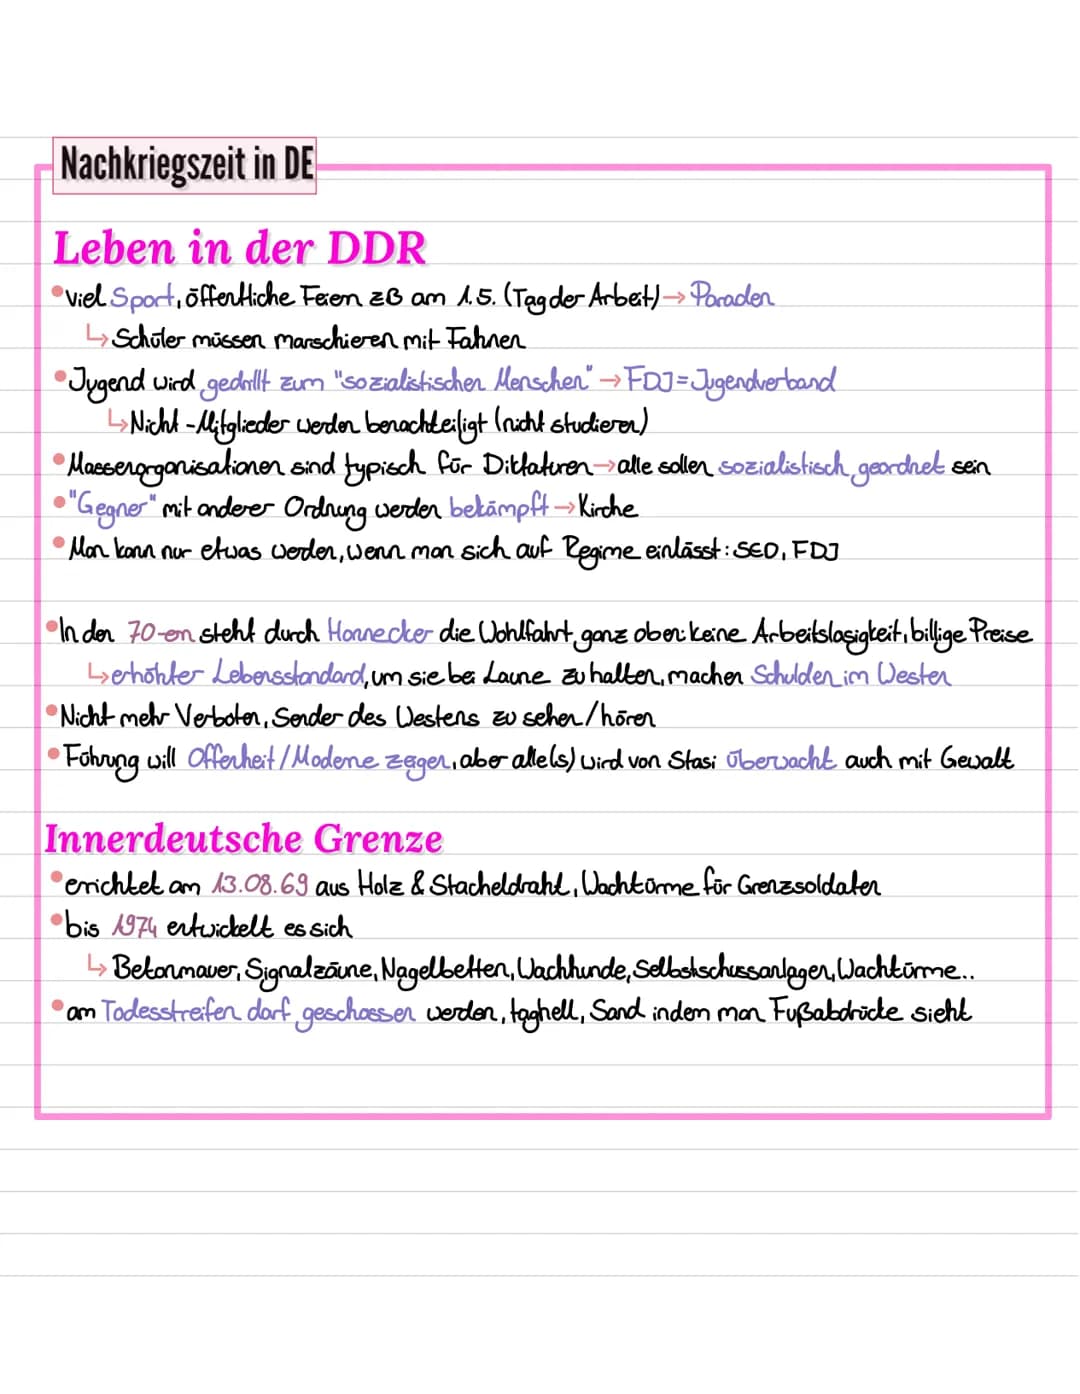 Nachkriegszeit in DE
Leben in der DDR
• viel Sport, öffentliche Feiern zB am 1.5. (Tag der Arbeit) → Paraden
↳ Schüler müssen marschieren mit Fahnen
• Jugend wird gedrillt zum "sozialistischen Menschen" → FDJ = Jugendverband
↳ Nicht-Mitglieder werden benachteiligt (nicht studieren)
• Massenorganisationen sind typisch für Diktaturen → alle sollen sozialistisch geordnet sein
• "Gegner" mit anderer Ordnung werden bekämpft → Kirche
• Man kann nur etwas werden, wenn man sich auf Regime einlässt: SED, FDJ
• In den 70-ern steht durch Honnecker die Wohlfahrt, ganz oben: keine Arbeitslosigkeit, billige Preise
↳ erhöhter Lebensstandard, um sie bei Laune zu halten, machen Schulden im Westen
• Nicht mehr Verboten, Sender des Westens zu sehen/hören
• Führung will Offenheit/Moderne zeigen, aber alle(s) wird von Stasi überwacht auch mit Gewalt
Innerdeutsche Grenze
• errichtet am 13.08.69 aus Holz & Stacheldraht, Wachtürme für Grenzsoldaten
• bis 1974 entwickelt es sich
↳ Betonmauer, Signalzäune, Nagelbetten, Wachhunde, Selbstschussanlagen, Wachtürme..
• am Todesstreifen darf geschossen werden, taghell, Sand indem man Fußabdrücke sieht